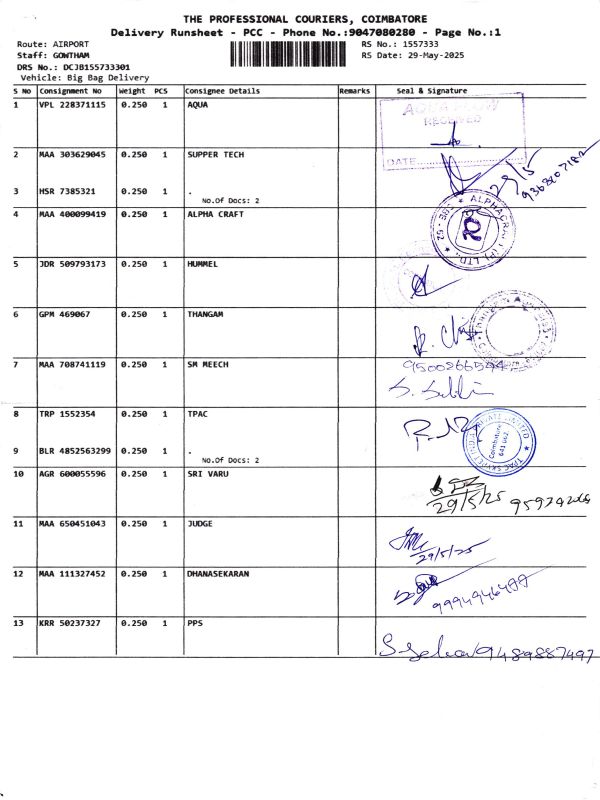 THE PROFESSIONAL COURIERS, COIMBATORE
Delivery Runsheet - PCC - Phone No.:9047080280 - Page No.:1
Route: AIRPORT
RS No.: 1557333
Staff: GOWTHAM
RS Date: 29-May-2025
DRS No.: DCJB155733301
Vehicle: Big Bag Delivery
S No Consignment No Weight PCS Consignee Details Remarks Seal & Signature
1 VPL 228371115 0.250 1 AQUA
AQUA FLOW
RECEIVED
DATE
2 MAA 303629045 0.250 1 SUPPER TECH
29/5
3 HSR 7385321 0.250 1 .
No.Of Docs: 2
4 MAA 400099419 0.250 1 ALPHA CRAFT
ALPHACRAFT (P) LTD.
5 JDR 509793173 0.250 1 HUMMEL
6 GPM 469067 0.250 1 THANGAM
7 MAA 708741119 0.250 1 SM MEECH
8 TRP 1552354 0.250 1 TPAC
Coimbatore
641 062
9 BLR 4852563299 0.250 1 .
No.Of Docs: 2
10 AGR 600055596 0.250 1 SRI VARU
29/5/25
11 MAA 650451043 0.250 1 JUDGE
29/5/25
12 MAA 111327452 0.250 1 DHANASEKARAN
9994946499
13 KRR 50237327 0.250 1 PPS
9489887497